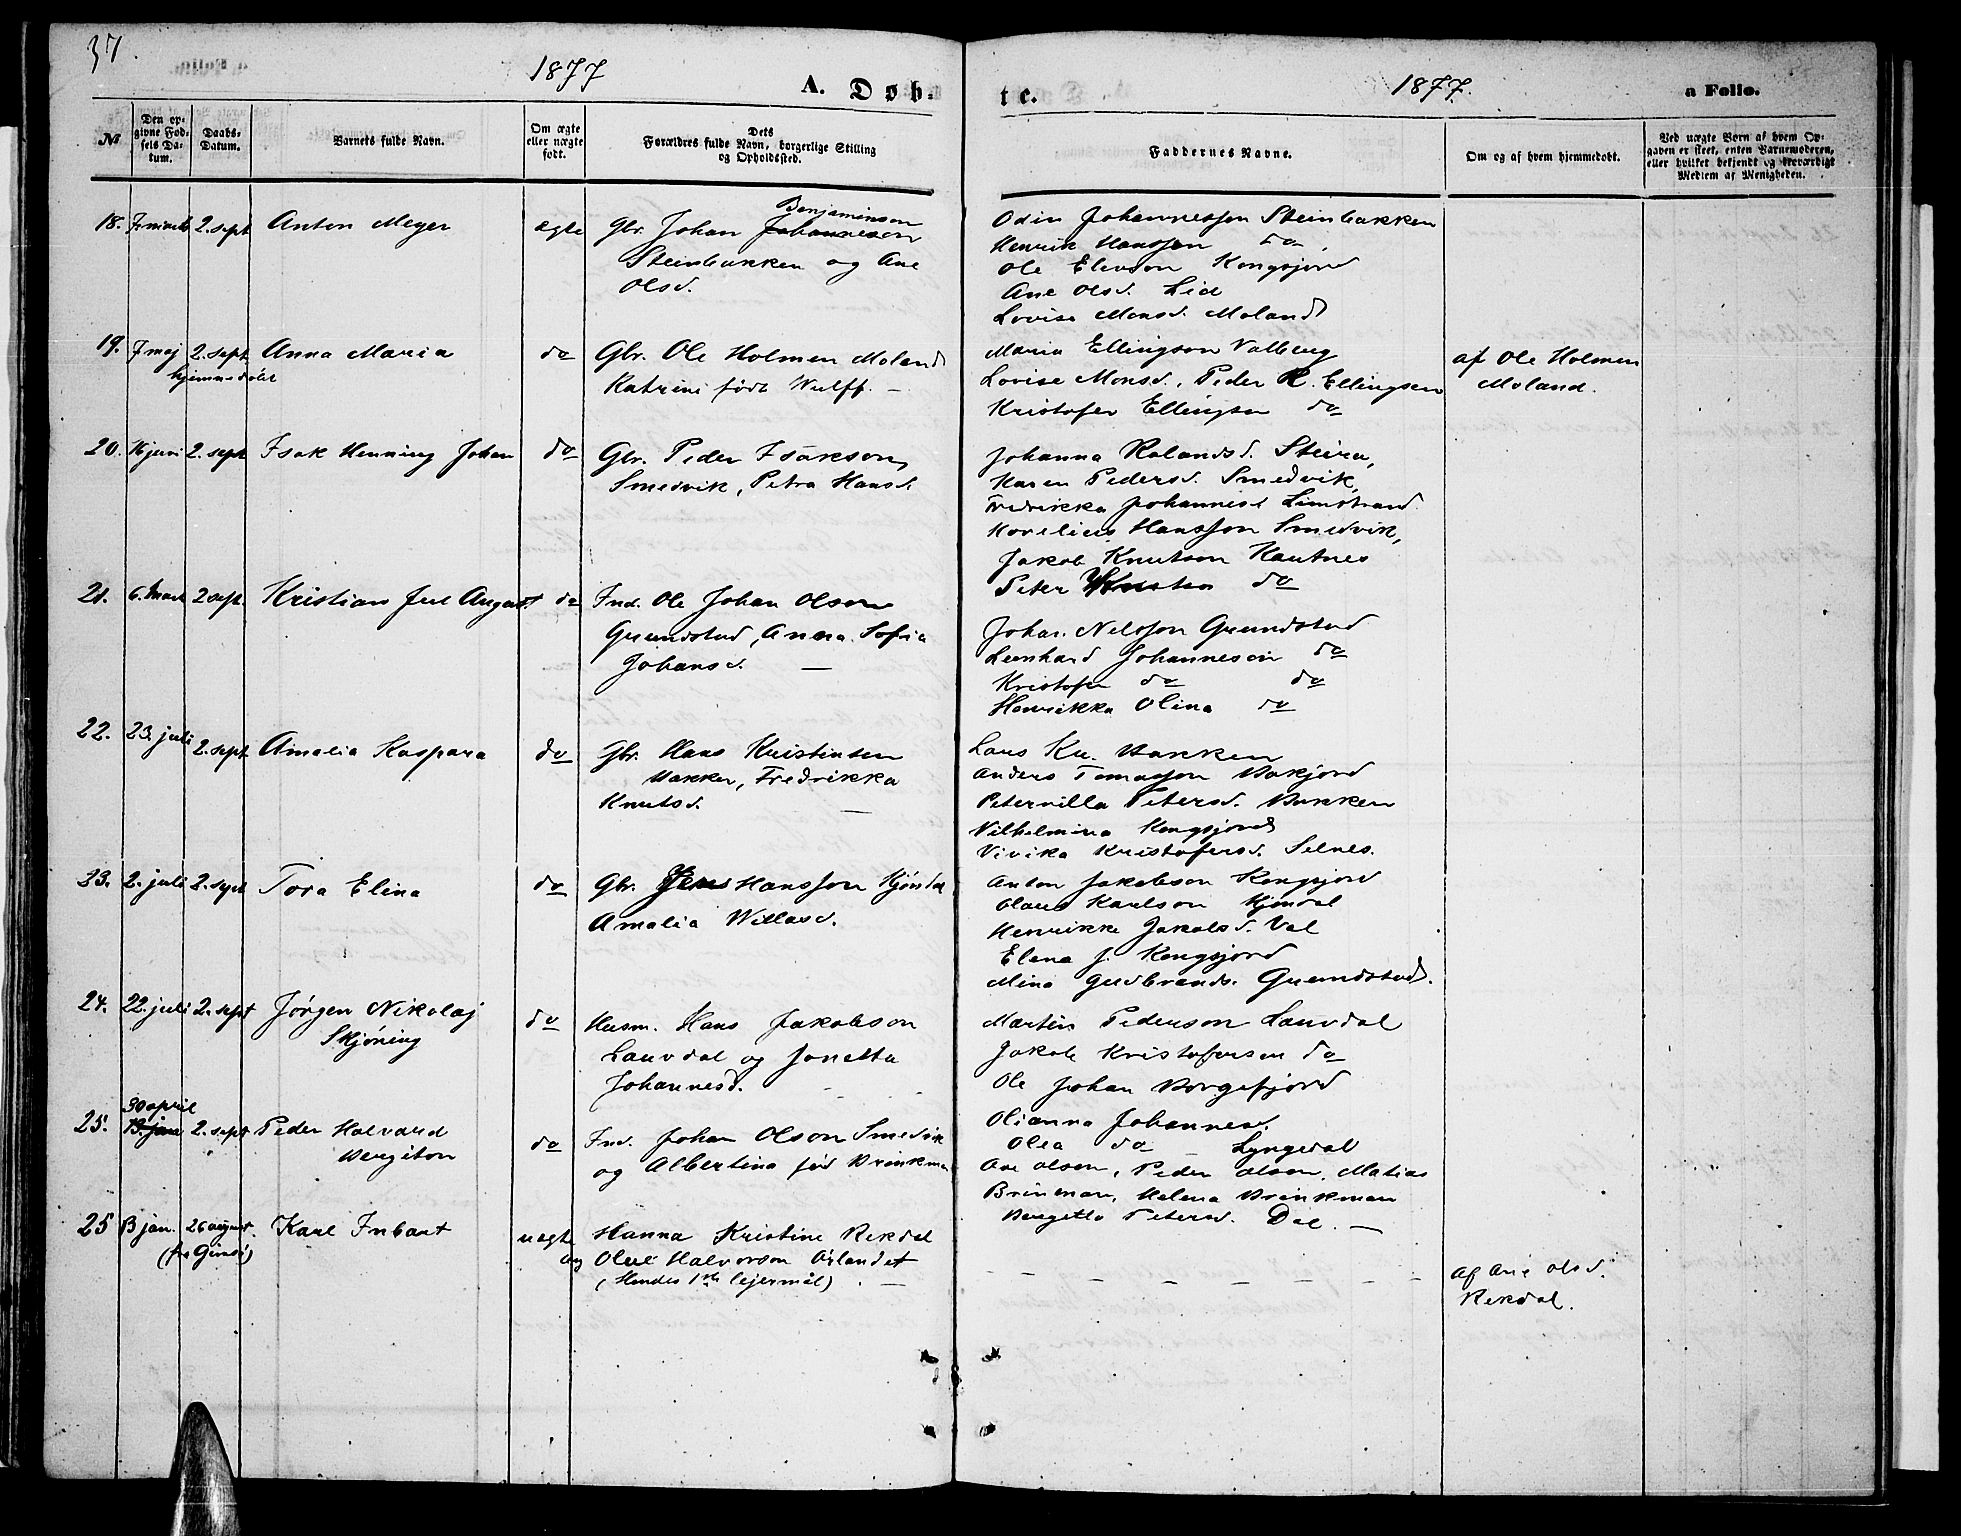 37.
1877
A. Døb-
№
Den opgivne Fødsels Datum.
Daabs-Datum.
Barnets fulde Navn.
Om ægte eller uægte født.
Dets Forældres fulde Navn, borgerlige Stilling og Opholdssted.
18. 2. sept Anton Meyer ægte Gbr. Johan Johanneson Benjaminson
Steinbakken og Ane
Olsd.
19. 7 maj 2. sept Anna Maria do Gbr. Ole Holmen Moland
hjemmedøbt Katrine født Wulff. —
20. 16 juni 2. sept Isak Henning Johan do Gbr. Peder Isakson
Smedvik, Petra Hansd.
21. 6. Mars 2 sept. Kristian Jul August do Ind. Ole Johan Olson
Grundstad, Anna Sofia
Johansd. —
22. 23. juli 2. sept Amalia Kaspara do Gbr. Hans Kristinsen
Bakken, Fredrikka
Knutsd. —
23. 2. juli 2. sept Tora Elina do Gbr. Jens Hansson Kjøndal
Amalia Willasd.
24. 22. juli 2. sept Jørgen Nikolaj do Husm. Hans Jakobson
Skjøning Lauvdal og Jonetta
Johannesd.
30 april
25. 13. jan 2. sept Peder Halvard do Ind. Johan Olson Smedvik
Bergiton og Albertina fød Brinkman
25 13 jan. 26 august. Karl Inbart uægte Hanna Kristine Rekdal
(fra Gimsø) og Oluf Halvorson Ørlandet
(Hendes 1ste lejermål). —
te.
1877.
a Folio.
Faddernes Navne.
Om og af hvem hjemmedøbt.
Ved uægte Børn af hvem Opgaven er skeet, enten Barnemoderen, eller hvilket bekjendt og troværdigt Medlem af Menigheden.
Odin Johannesson Steinbakken
Henrik Hansson do
Ole Elevson Kongsjord
Ane Olsd. Lid
Lovise Monsd. Moland
Maria Ellingson Valberg af Ole Holmen
Lovise Monsd., Peder R. Ellingsen Moland.
Kristofer Ellingsen do
Johanna Rolandsd. Steira,
Karen Pedersd. Smedvik,
Fredrikka Johannesd Limstrand
Kornelius Hansson Smedvik,
Jakob Knutson Hautnes
Peter Knutson do
Johan Nelsson Grundstad
Leonhard Johanneson do
Kristofer do do
Henrikka Olina do
Lars Kr. Bakken
Anders Tomasson Vakjord
Peternilla Petersd. Bakken
Vilhelmina Kongsjord
Vivika Kristofersd. Selnes.
Anton Jakobson Kongsjord
Olaus Karlson Kjøndal
Henrikke Jakobsd. Val
Elena J. Kongsjord
Mina Gudbrands. Grundstad.
Martin Pederson Lauvdal
Jakob Kristofersen do
Ole Johan Borgefjord
Olianna Johannesd.
Olea do – Lyngedal
Ane Olsen, Peder Olsen, Matias
Brinkman, Helena Brinkman
Bergitta Petersd. Dal. —
– – – – – – – af Ane Olsd.
Rekdal.